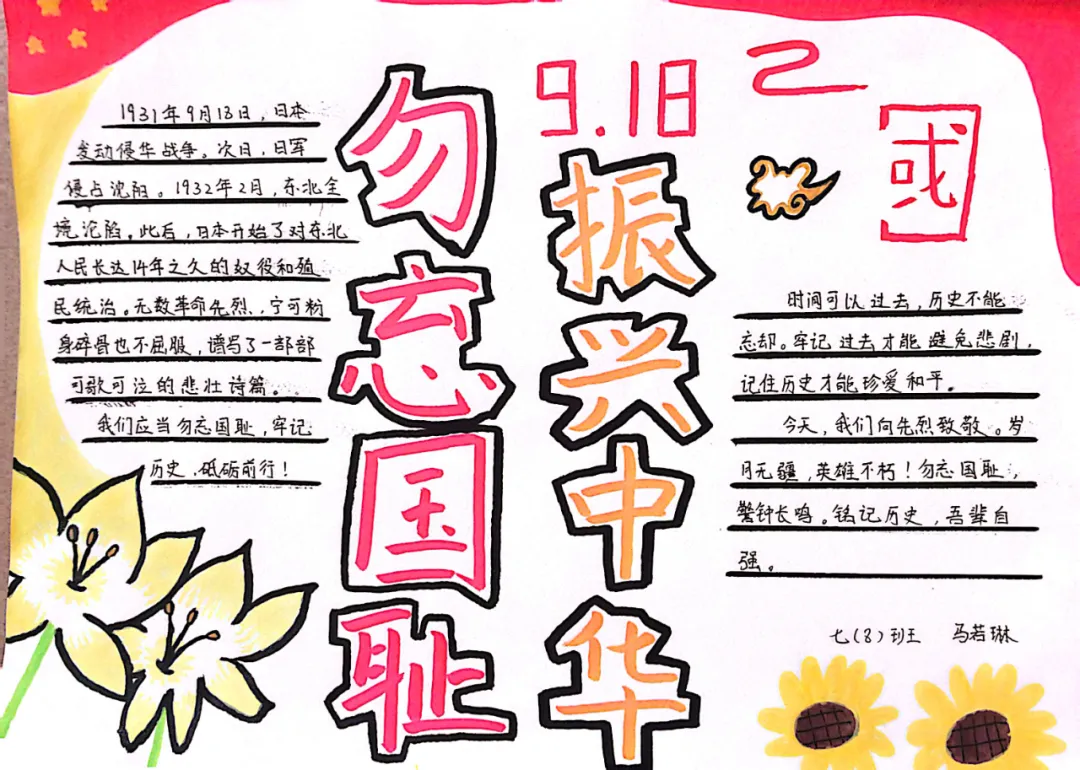 9.18
國
勿忘国耻
振兴中华
1931年9月18日，日本
发动侵华战争。次日，日军
侵占沈阳。1932年2月，东北全
境沦陷。此后，日本开始了对东北
人民长达14年之久的奴役和殖
民统治。无数革命先烈，宁可粉
身碎骨也不屈服，谱写了一部部
可歌可泣的悲壮诗篇。
我们应当勿忘国耻，牢记
历史、砥砺前行！
时间可以过去，历史不能
忘却。牢记过去才能避免悲剧，
记住历史才能珍爱和平。
今天，我们向先烈致敬。岁
月无疆，英雄不朽！勿忘国耻，
警钟长鸣。铭记历史，吾辈自
强。
七(8)班 马若琳